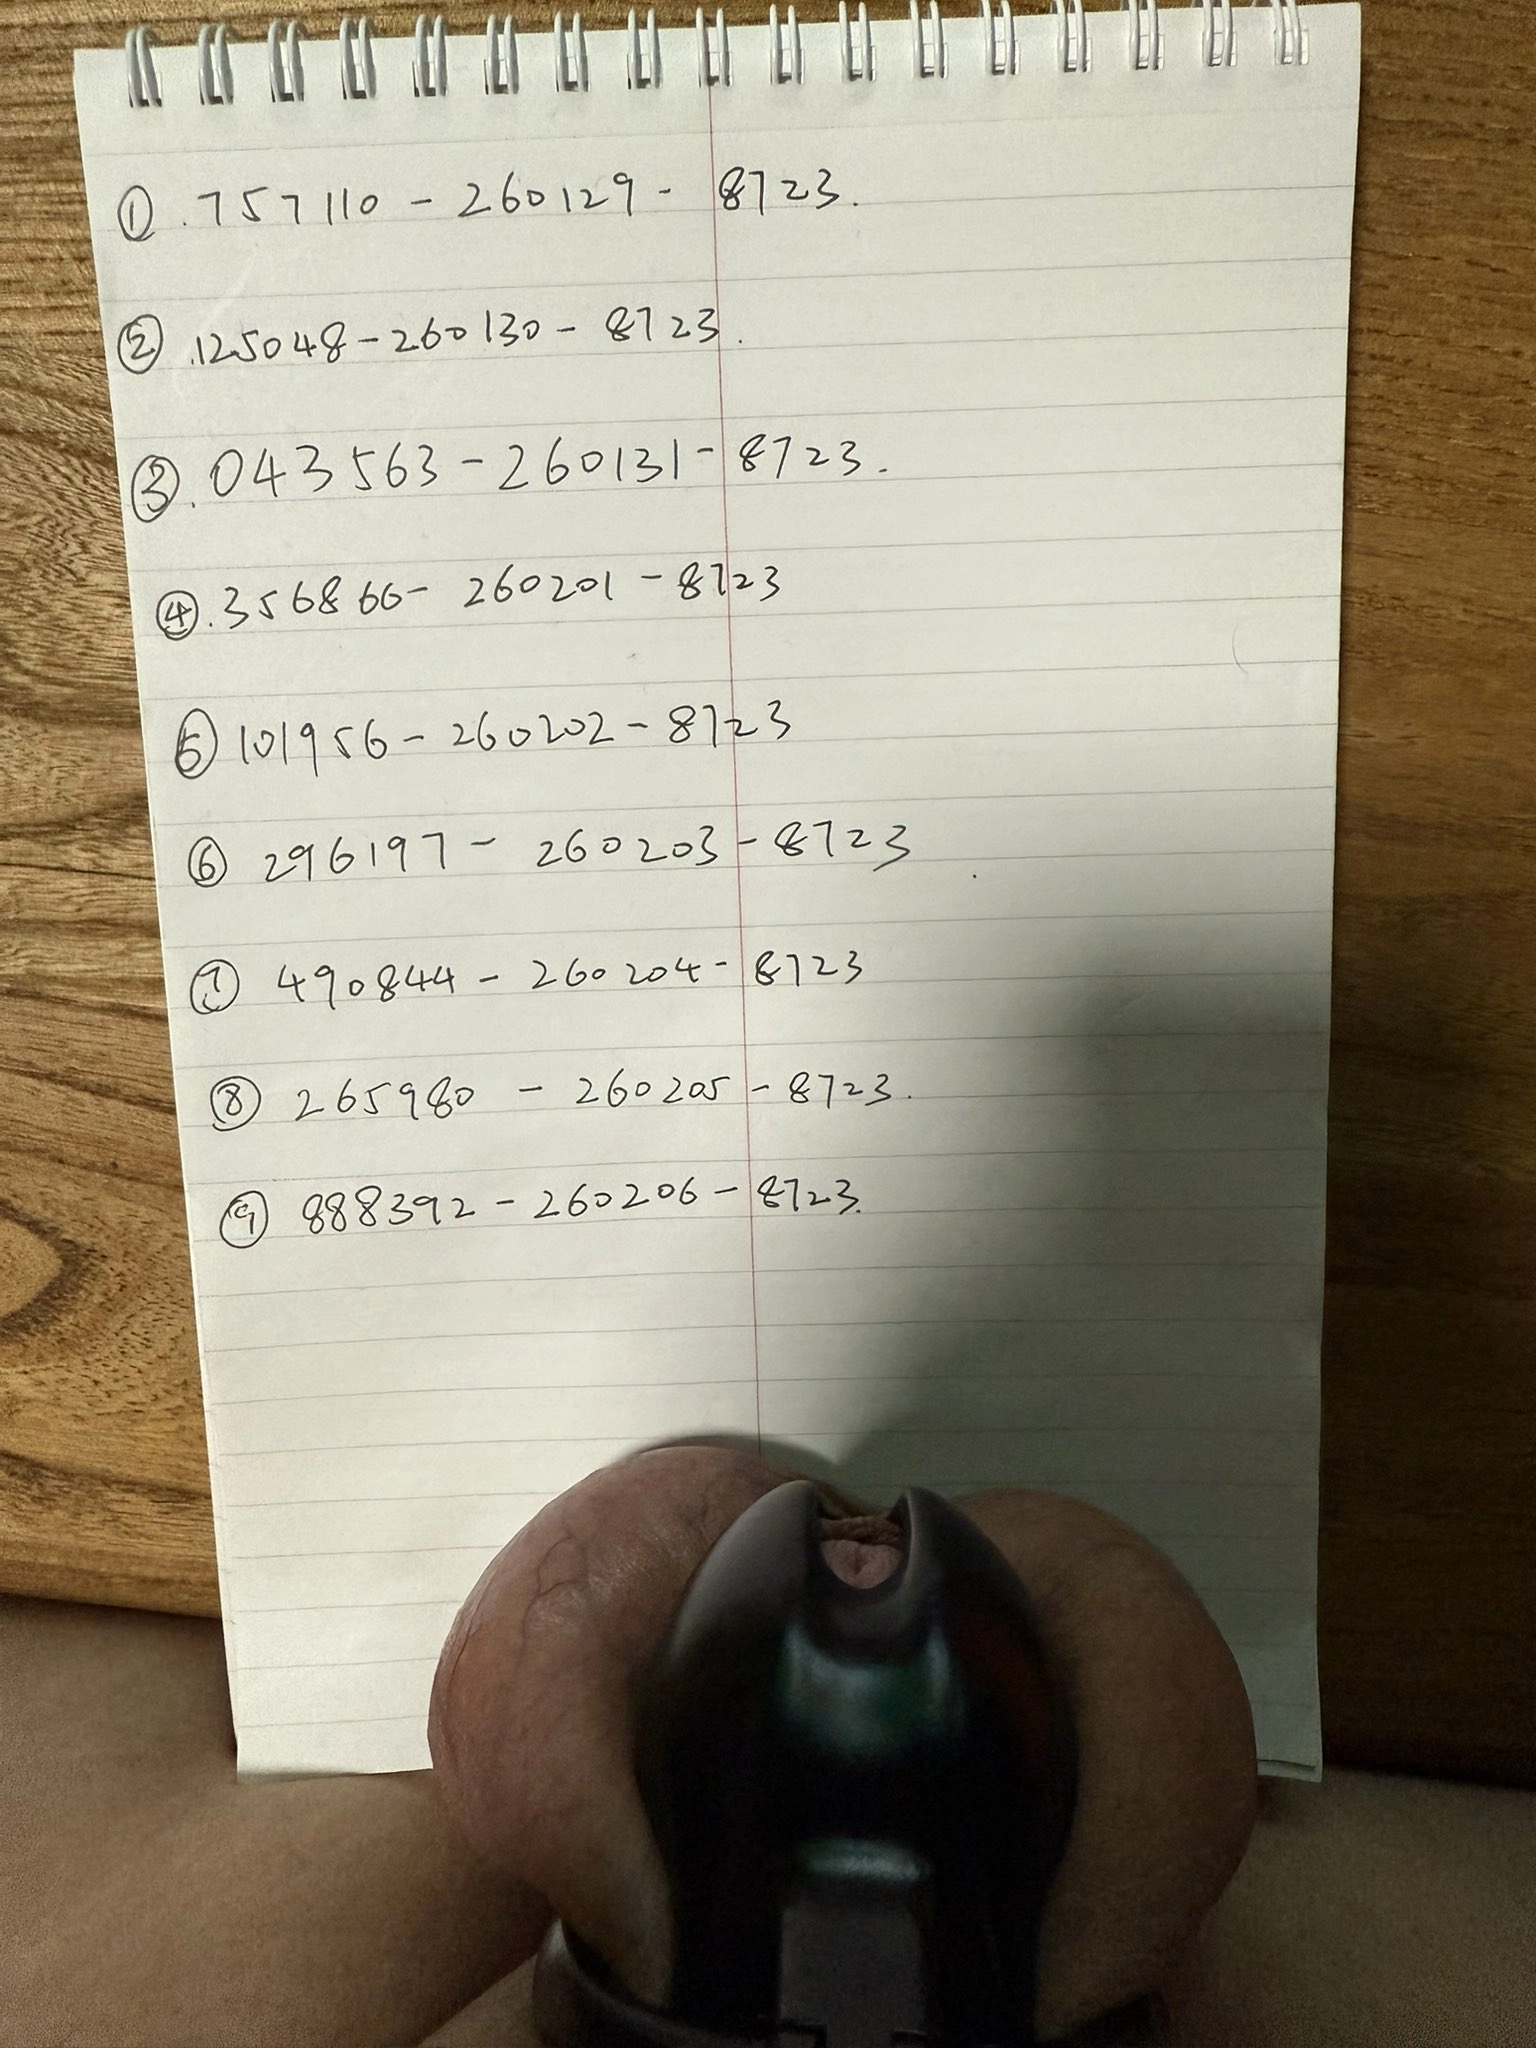 ① .757110 - 260129 - 8723.
② .125048 - 260130 - 8723.
③ .043563 - 260131 - 8723.
④ .356866 - 260201 - 8723
⑤ 101956 - 260202 - 8723
⑥ 296197 - 260203 - 8723
⑦ 490844 - 260204 - 8723
⑧ 265980 - 260205 - 8723.
⑨ 888392 - 260206 - 8723.